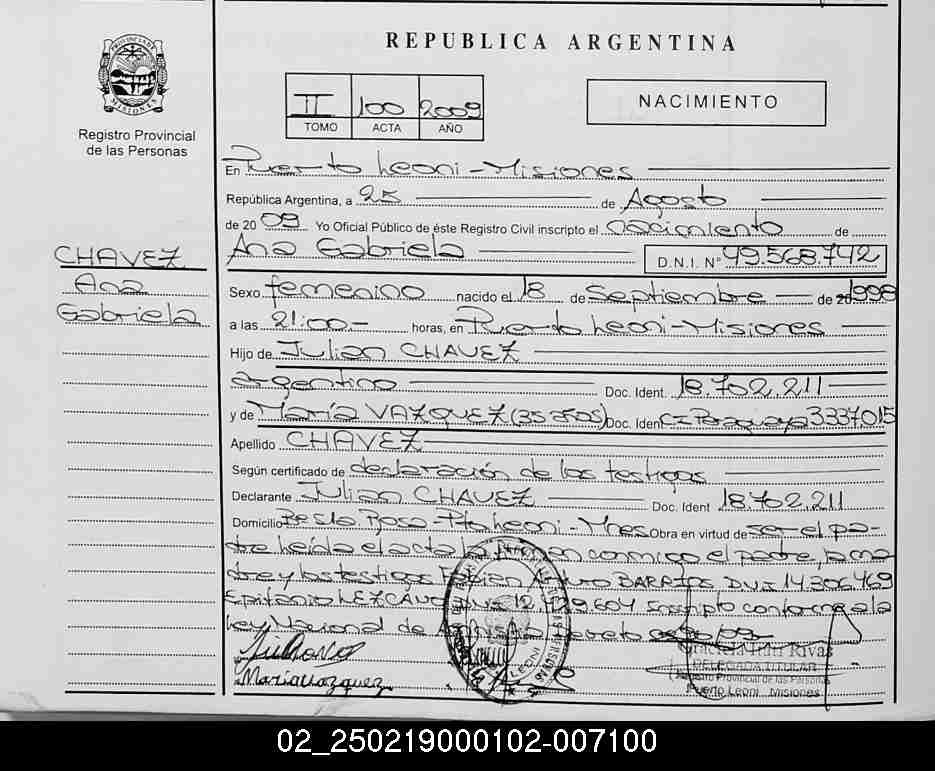 REPUBLICA ARGENTINA
PROVINCIA DE MISIONES
Registro Provincial
de las Personas
II 100 2009
TOMO ACTA AÑO
NACIMIENTO
En Puerto Leoni - Misiones
República Argentina, a 25 de Agosto
de 2009 Yo Oficial Público de éste Registro Civil inscripto el nacimiento de
Ana Gabriela D.N.I. Nº 49.568.742
CHAVEZ
Ana
Gabriela
Sexo femenino nacido el 18 de Septiembre de 1998
a las 21:00.- horas, en Puerto Leoni - Misiones
Hijo de Julian CHAVEZ
argentino Doc. Ident. 18.702.211
y de María VAZQUEZ (35 años) Doc. Iden C.I. Paraguaya 3337015
Apellido CHAVEZ
Según certificado de declaración de los testigos
Declarante Julian CHAVEZ Doc. Ident 18.702.211
Domicilio Bº Sta. Rosa - Pto Leoni - Mnes Obra en virtud de ser el pa-
dre leída el acta la firman conmigo el padre, la ma
dre y los testigos Fabian BARRIOS D.N.I 14.306.469
Epifanio LEZCANO 604 Inscripto conforme a la
Ley Nacional de
Maria Vazquez
LEONI
Graciela Rivas
DELEGADA TITULAR
Registro Provincial de las Personas
Puerto Leoni Misiones
02_250219000102-007100